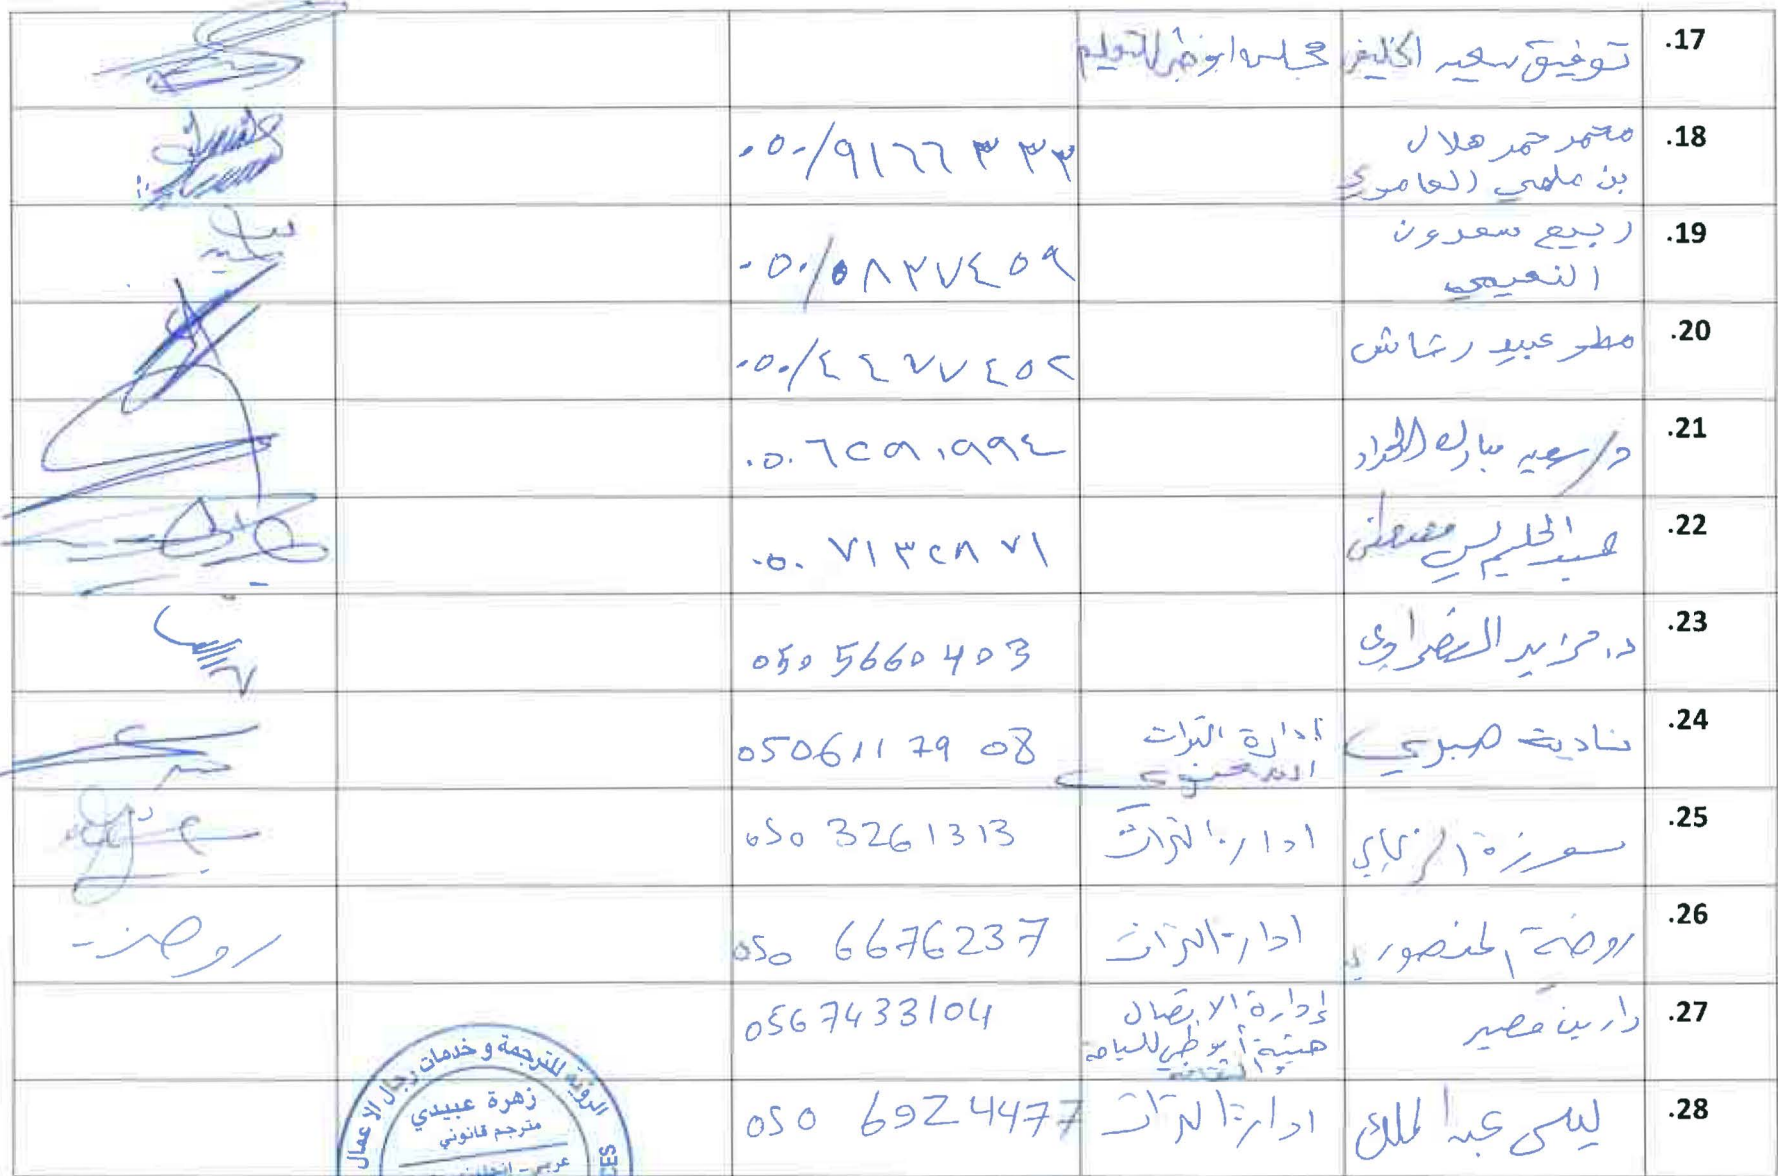 .17 توفيق سعيد مجلس ابوظبي للتعليم
.18 محمد حمد هلال
بن ملهي العامري ٠٥٠/٩١٦٦٣٣٣
.19 ربيع سعدون
النعيمي ٠٥٠/٥٨٣٧٤٥٩
.20 مطر عبيد رشاش ٠٥٠/٤٤٧٧٤٥٢
.21 د/سعيد مبارك الحداد ٠٥٠٦٢٥٩٠٩٩٤
.22 عبد الحليم ٠٥٠ ٧١٣٢٨٧١
.23 د. 050 5660403
.24 نادية صبري إدارة التراث
المعنوي 0506117908
.25 ادارة التراث 050 3261313
.26 روضة المنصوري ادارة التراث 050 6676237 روضة
.27 دارين إدارة الاتصال
هيئة أبوظبي للسياحة
والثقافة 0567433104
.28 ليلى عبد الملك ادارة التراث 050 6924477
الرؤية للترجمة و خدمات رجال الاعمال
زهرة عبيدي
مترجم قانوني
عربي - انجليزي